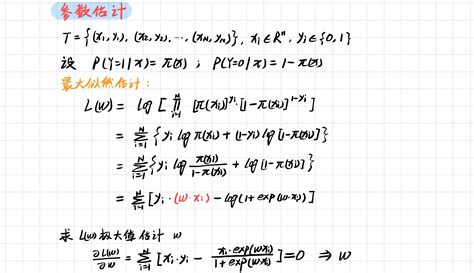 参数估计
T = {(x₁, y₁), (x₂, y₂), ..., (x_N, y_N)}, x_i ∈ Rⁿ, y_i ∈ {0, 1}
设 P(Y=1|x) = π(x) ; P(Y=0|x) = 1 - π(x)
最大似然估计:
L(w) = log [ ∏_{i=1}^{N} [π(x_i)]^{y_i} [1 - π(x_i)]^{1-y_i} ]
= ∑_{i=1}^{N} { y_i log π(x_i) + (1-y_i) log [1 - π(x_i)] }
= ∑_{i=1}^{N} { y_i log π(x_i)/(1 - π(x_i)) + log [1 - π(x_i)] }
= ∑_{i=1}^{N} [ y_i · (w · x_i) - log(1 + exp(w · x_i)) ]
求 L(w) 极大值估计 w
∂L(w)/∂w = ∑_{i=1}^{N} [ x_i · y_i - x_i · exp(w x_i)/(1 + exp(w x_i)) ] = 0 ⇒ w